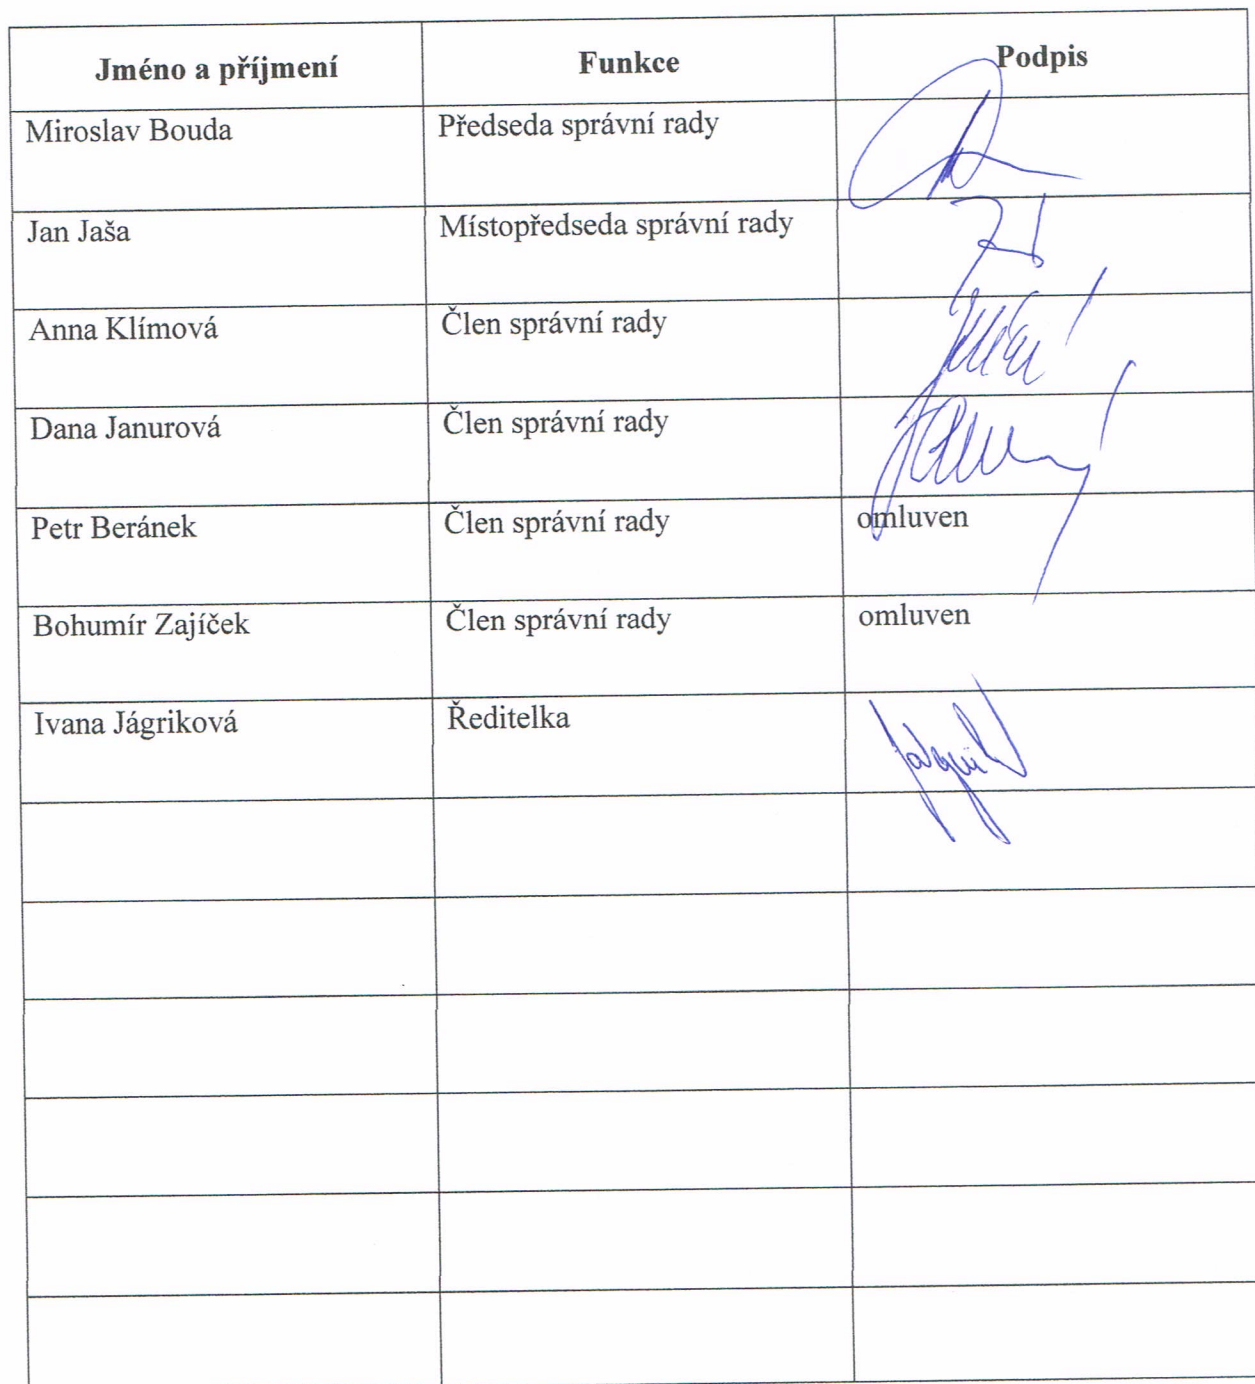 Jméno a příjmení Funkce Podpis
Miroslav Bouda Předseda správní rady
Jan Jaša Místopředseda správní rady
Anna Klímová Člen správní rady
Dana Janurová Člen správní rady
Petr Beránek Člen správní rady omluven
Bohumír Zajíček Člen správní rady omluven
Ivana Jágriková Ředitelka